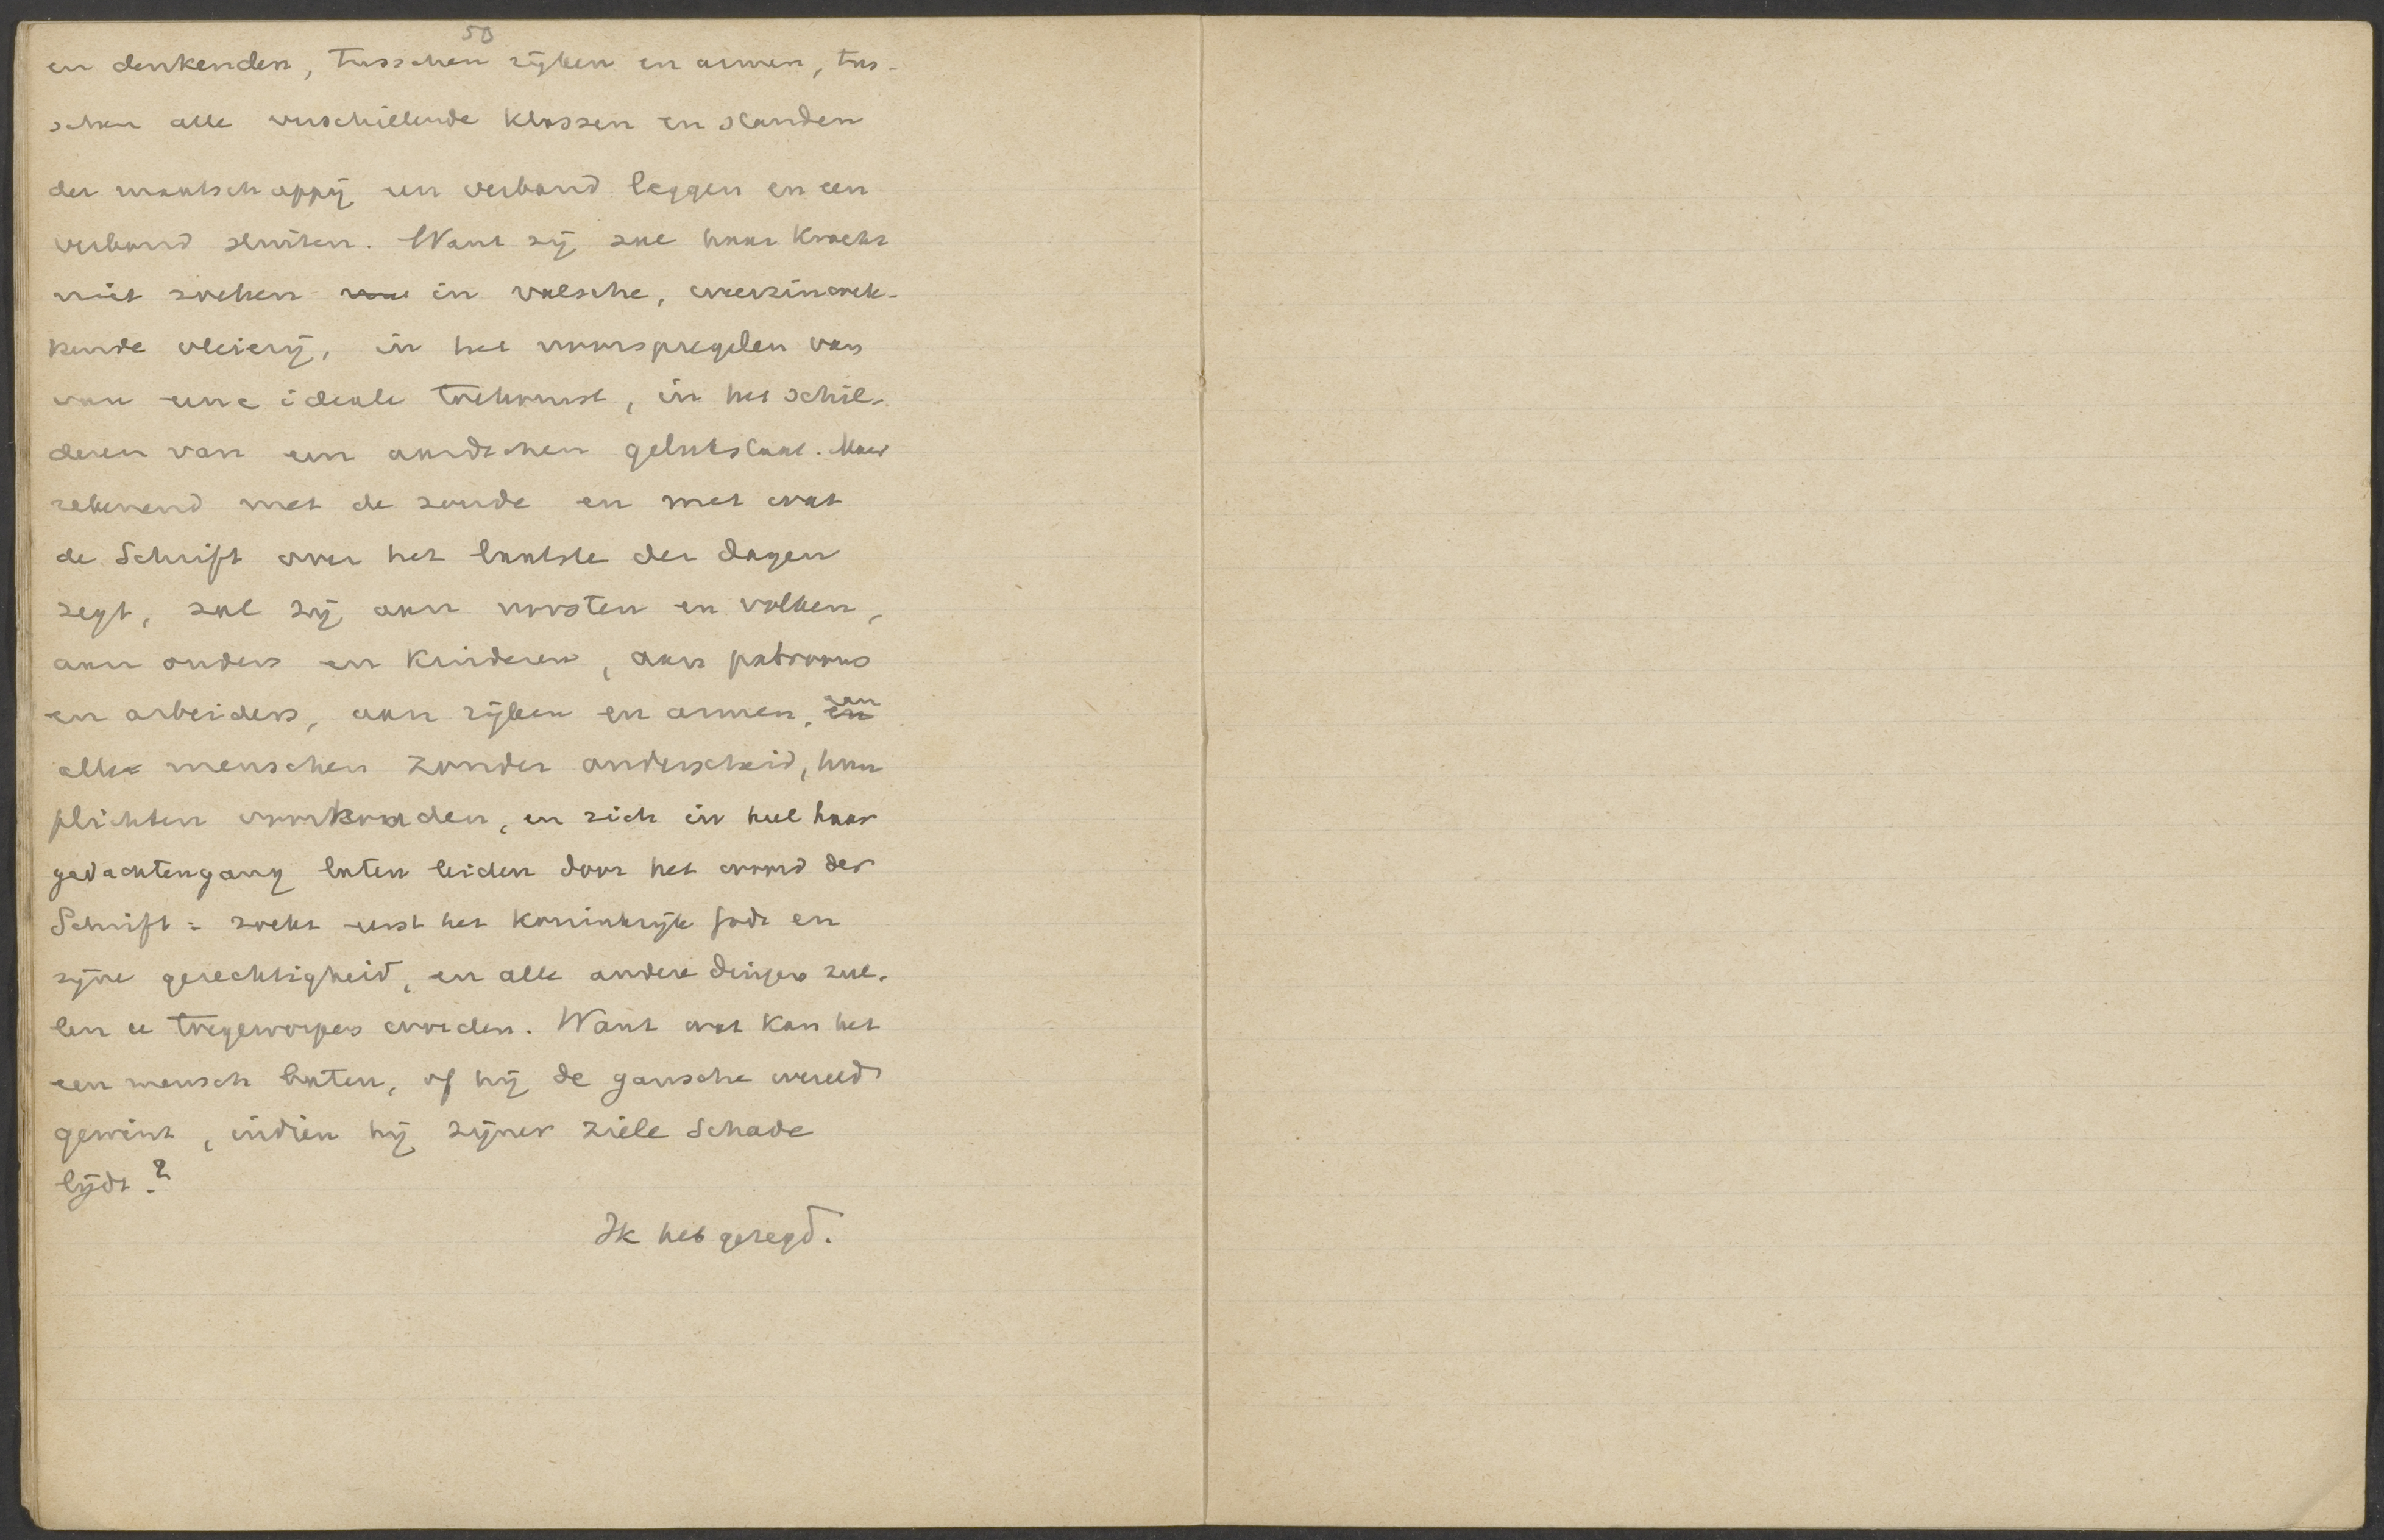 50
en denkenden, tusschen rijken en armen, tus-
schen alle verschillende klassen en standen
der maatschappij een verband leggen en een
verbond sluiten. Want zij zal haar kracht
niet zoeken in valsche, weerzinwek-
kende vleierij, in het voorspiegelen van
van eene ideale toekomst, in het schil-
deren van een aardschen gelukstaat. Maar
rekenend met de zonde en met wat
de Schrift over het laatste der dagen
zegt, zal zij aan vorsten en volken,
aan ouders en kinderen, aan patroons
en arbeiders, aan rijken en armen, en aan
alle menschen zonder onderscheid, hun
plichten voorhouden, en zich in heel haar
gedachtengang laten leiden door het woord der
Schrift: zoekt eerst het koninkrijk Gods en
zijne gerechtigheid, en alle andere dingen zul-
len u toegeworpen worden. Want wat kan het
een mensch baten, of hij de gansche wereld
gewint, indien hij zijner ziele schade
lijdt.?
Ik heb gezegd.